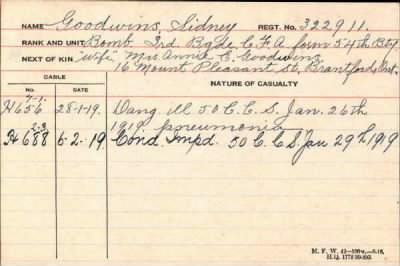 NAME Goodwins, Sidney REGT. NO. 322911.
RANK AND UNIT Bomb. 3rd. Bgde. C. F. A. from 54th Bty.
NEXT OF KIN "Wife", Mrs. Annie E. Goodwins
16 Mount Pleasant St, Brantford, Ont.
CABLE
No. DATE NATURE OF CASUALTY
H656 28-1-19. Dang. ill 50 C. C. S. Jan. 26th
1919 pneumonia
2.3
H688 6-2-19 Cond. Impd. 50 C. C. S. Jan 29th 1919
M. F. W. 42—
H.Q. 1772-39-893.